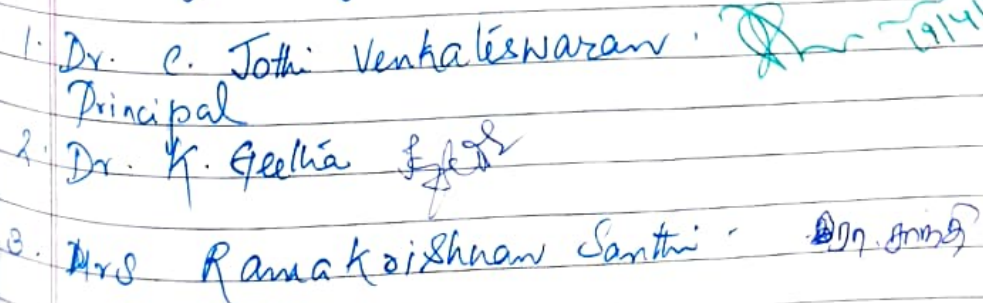 1. Dr. C. Jothi Venkateswaran. 19/4/
Principal
2. Dr. K. Geetha
3. Mrs Ramakrishnan Santhi - இரா. சாந்தி